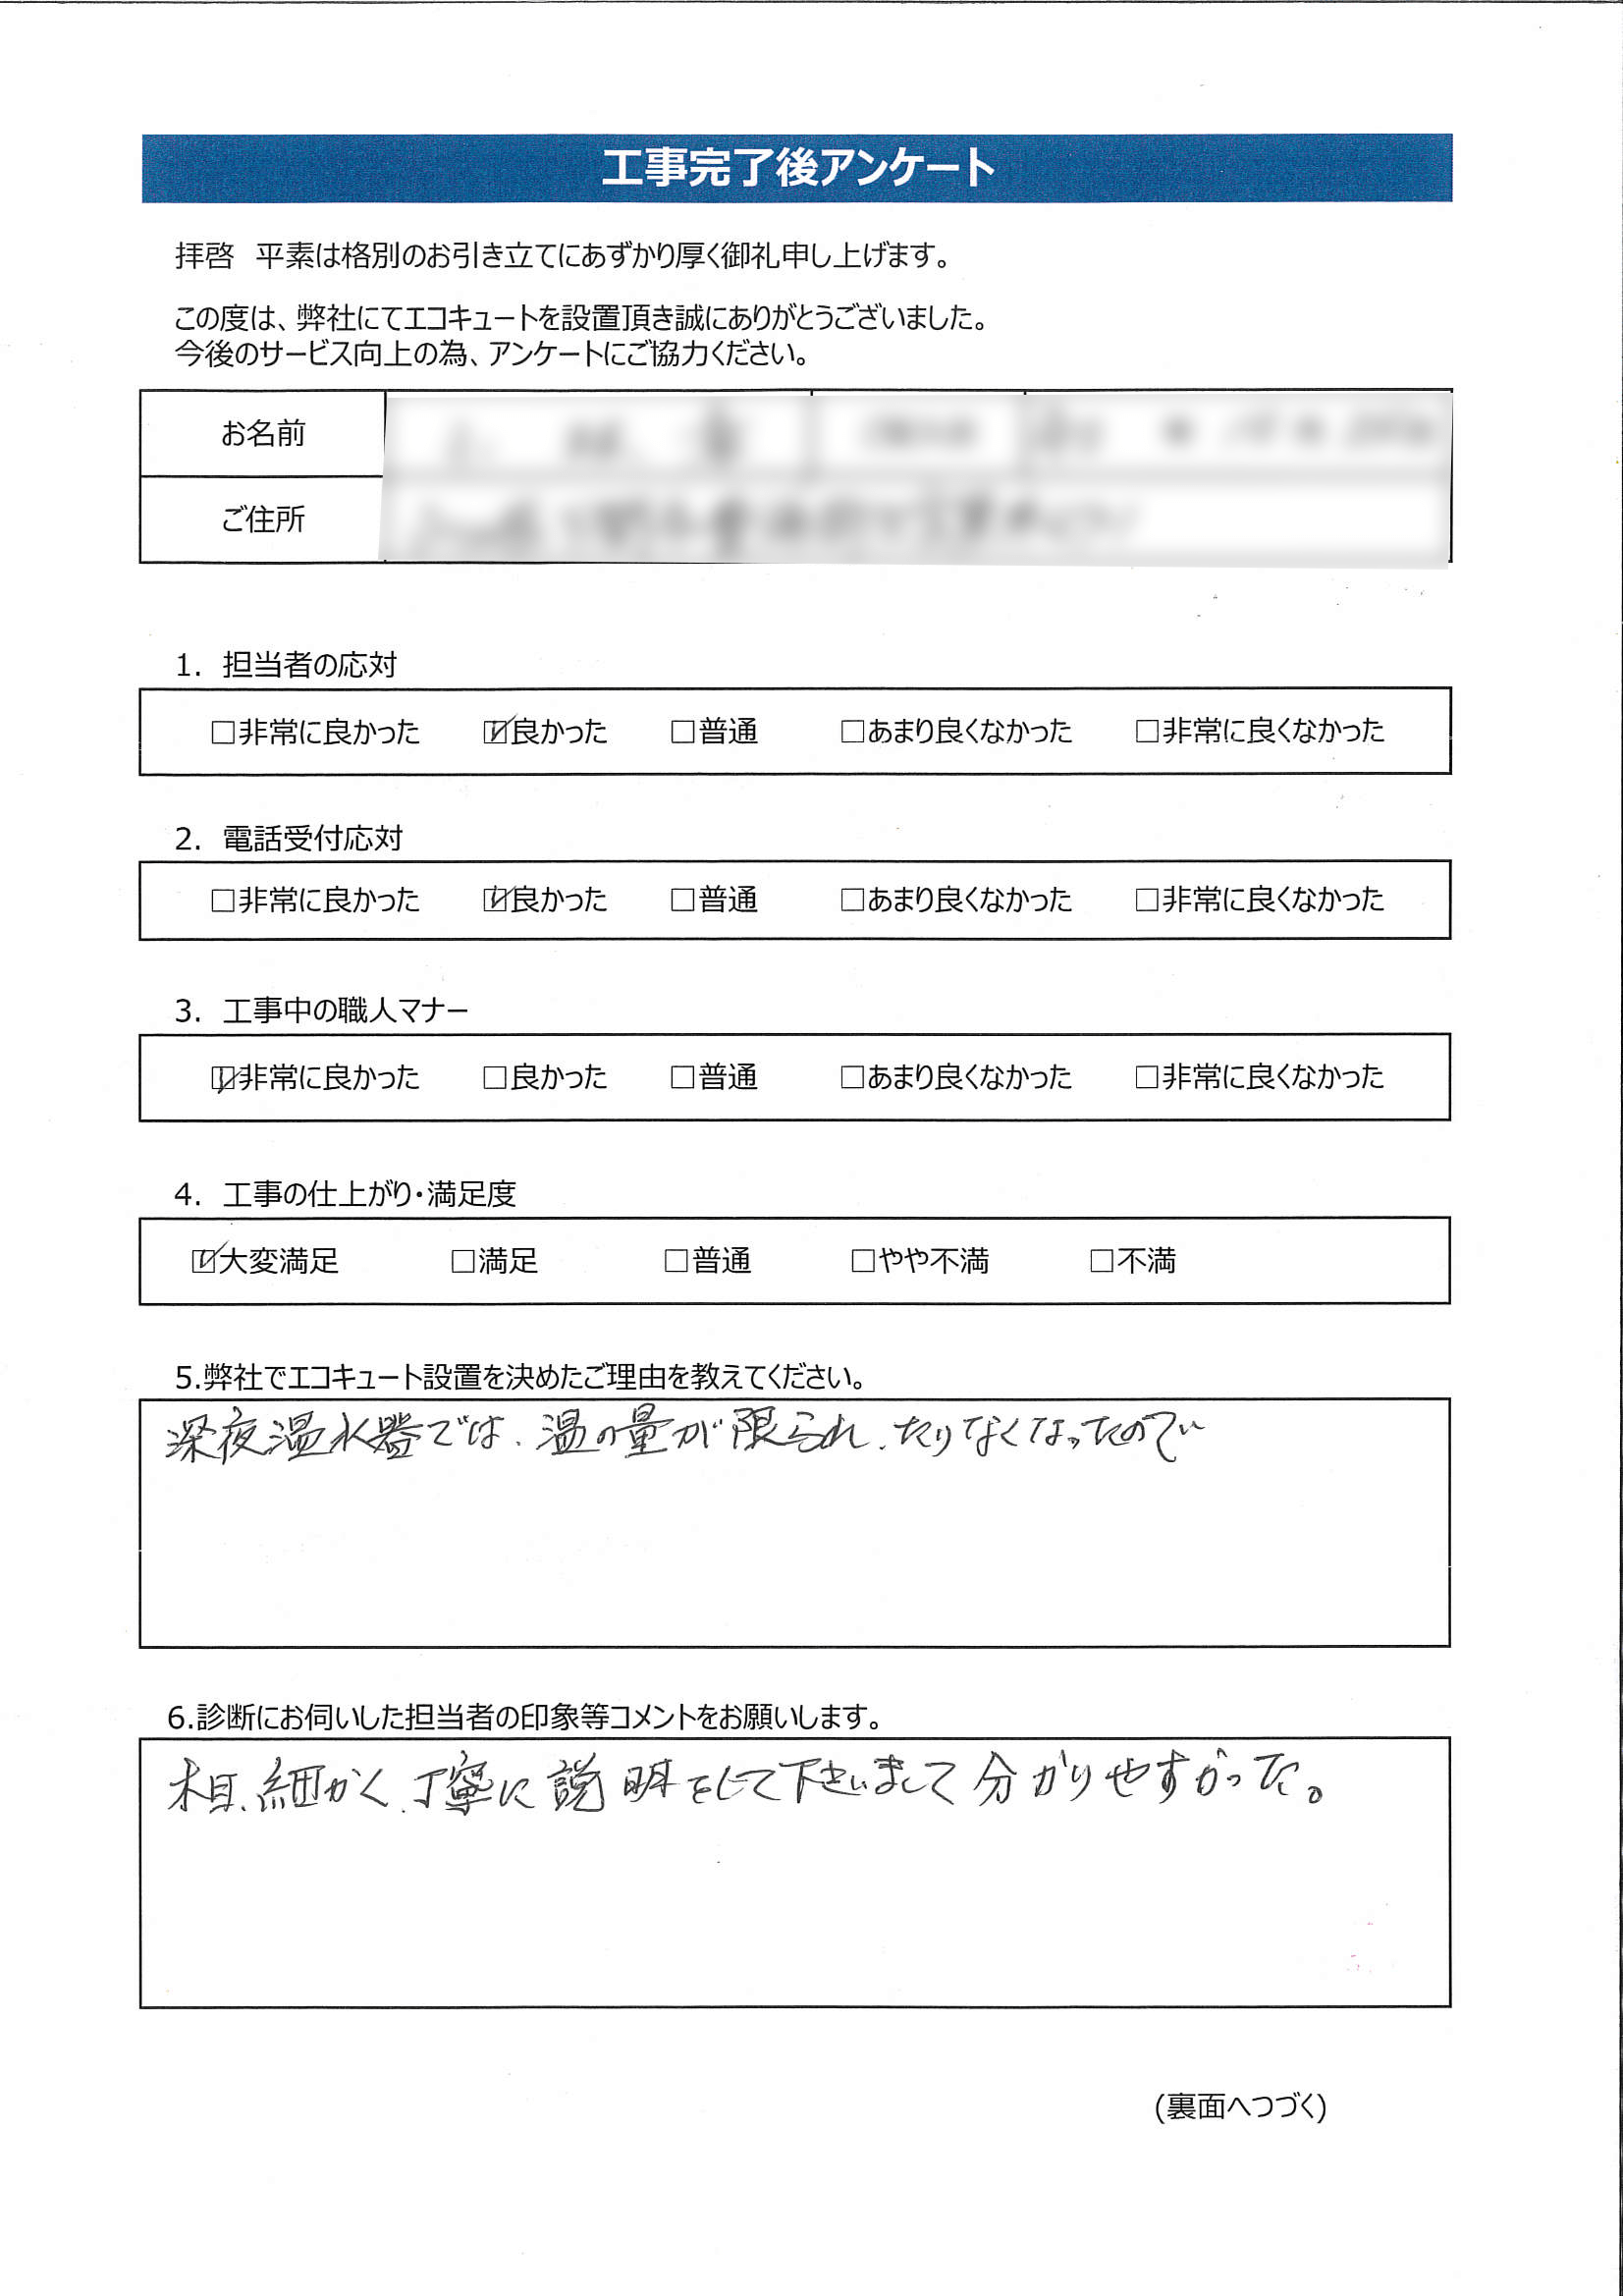 工事完了後アンケート
拝啓　平素は格別のお引き立てにあずかり厚く御礼申し上げます。
この度は、弊社にてエコキュートを設置頂き誠にありがとうございました。
今後のサービス向上の為、アンケートにご協力ください。
お名前
ご住所
1. 担当者の応対
□非常に良かった ☑良かった □普通 □あまり良くなかった □非常に良くなかった
2. 電話受付応対
□非常に良かった ☑良かった □普通 □あまり良くなかった □非常に良くなかった
3. 工事中の職人マナー
☑非常に良かった □良かった □普通 □あまり良くなかった □非常に良くなかった
4. 工事の仕上がり・満足度
☑大変満足 □満足 □普通 □やや不満 □不満
5.弊社でエコキュート設置を決めたご理由を教えてください。
深夜温水器では、温の量が限られ、たりなくなったので
6.診断にお伺いした担当者の印象等コメントをお願いします。
細かく、丁寧に説明をして下さいまして分かりやすかった。
(裏面へつづく)